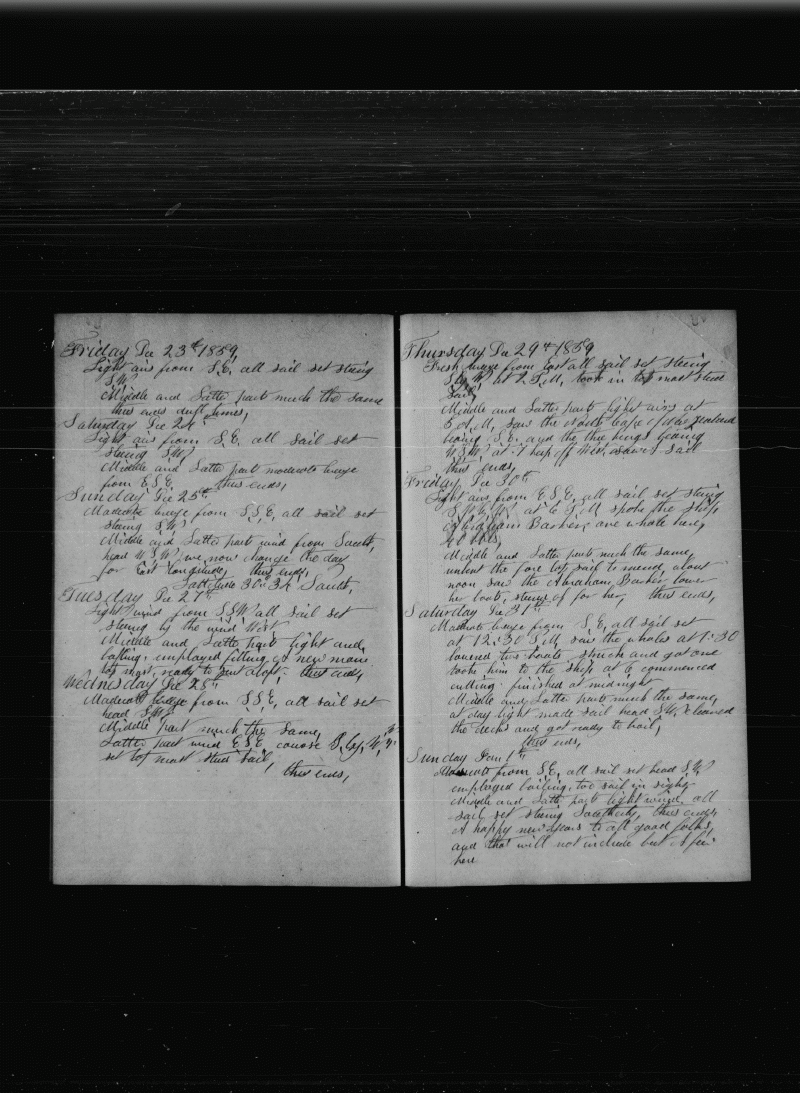 Friday Dec 23d 1859,
Light airs from S,E, all sail set steering
S,W,
Middle and Latter parts much the same
thus ends dull times,
Saturday Dec 24th
Light airs from S,E, all sail set
steering S,W,
Middle and Latter part moderate breeze
from E,S,E, thus ends,
Sunday Dec 25th
Moderate breeze from S,S,E, all sail set
steering S,W,
Middle and Latter part wind from South,
head W,S,W, we now change the day
for East longitude, thus ends,
Lattitude 36:34 South,
Tuesday Dec 27th
Light wind from S,S,W, all sail set
steering by the wind West
Middle and Latter part light and
bafling, employed fitting a new main
top mast, ready to send aloft, thus ends,
Wednesday Dec 28th
Moderate breeze from S,S,E, all sail set
head S,W,
Middle part much the same,
Latter part wind E,S,E, course S, by, W,
set top mast stud sail,
thus ends,
Thursday Dec 29th 1859
Fresh breeze from East all sail set steering
S by W, at 2 P,M, took in top mast stud
sail,
Middle and Latter parts light airs at
A,M, saw the North Cape of New Zealand
bearing S,E, and the three kings bearing
W,S,W, at 7 kep off West, saw 1 sail
thus ends,
Friday Dec 30th
Light airs from E,S,E, all sail set steering
at 6 P,M, spoke the ship,
Abraham Barker, one whale here,
bbls,
Middle and Latter parts much the same,
unbent the fore top sail to mend, about
noon saw the Abraham, Barker lower
her boats, steered of for her, thus ends,
Saturday Dec 31st
Moderate breeze from S,E, all sail set
at 12:30 P,M, saw the whales at 1:30
lowered two boats struck and got one
took him to the ship at 6 commenced
cutting finished at midnight
Middle and Latter parts much the same,
at day light made sail head S,W, cleaned
the decks and got ready to boil,
thus ends,
Sunday Jan 1st
Moderate from S,E, all sail set head S,W,
employed boiling, two sail in sight
Middle and Latter part light wind, all
sail set steing Southerly, thus ends,
A happy new years to all good folks,
and that will not include but A few
here